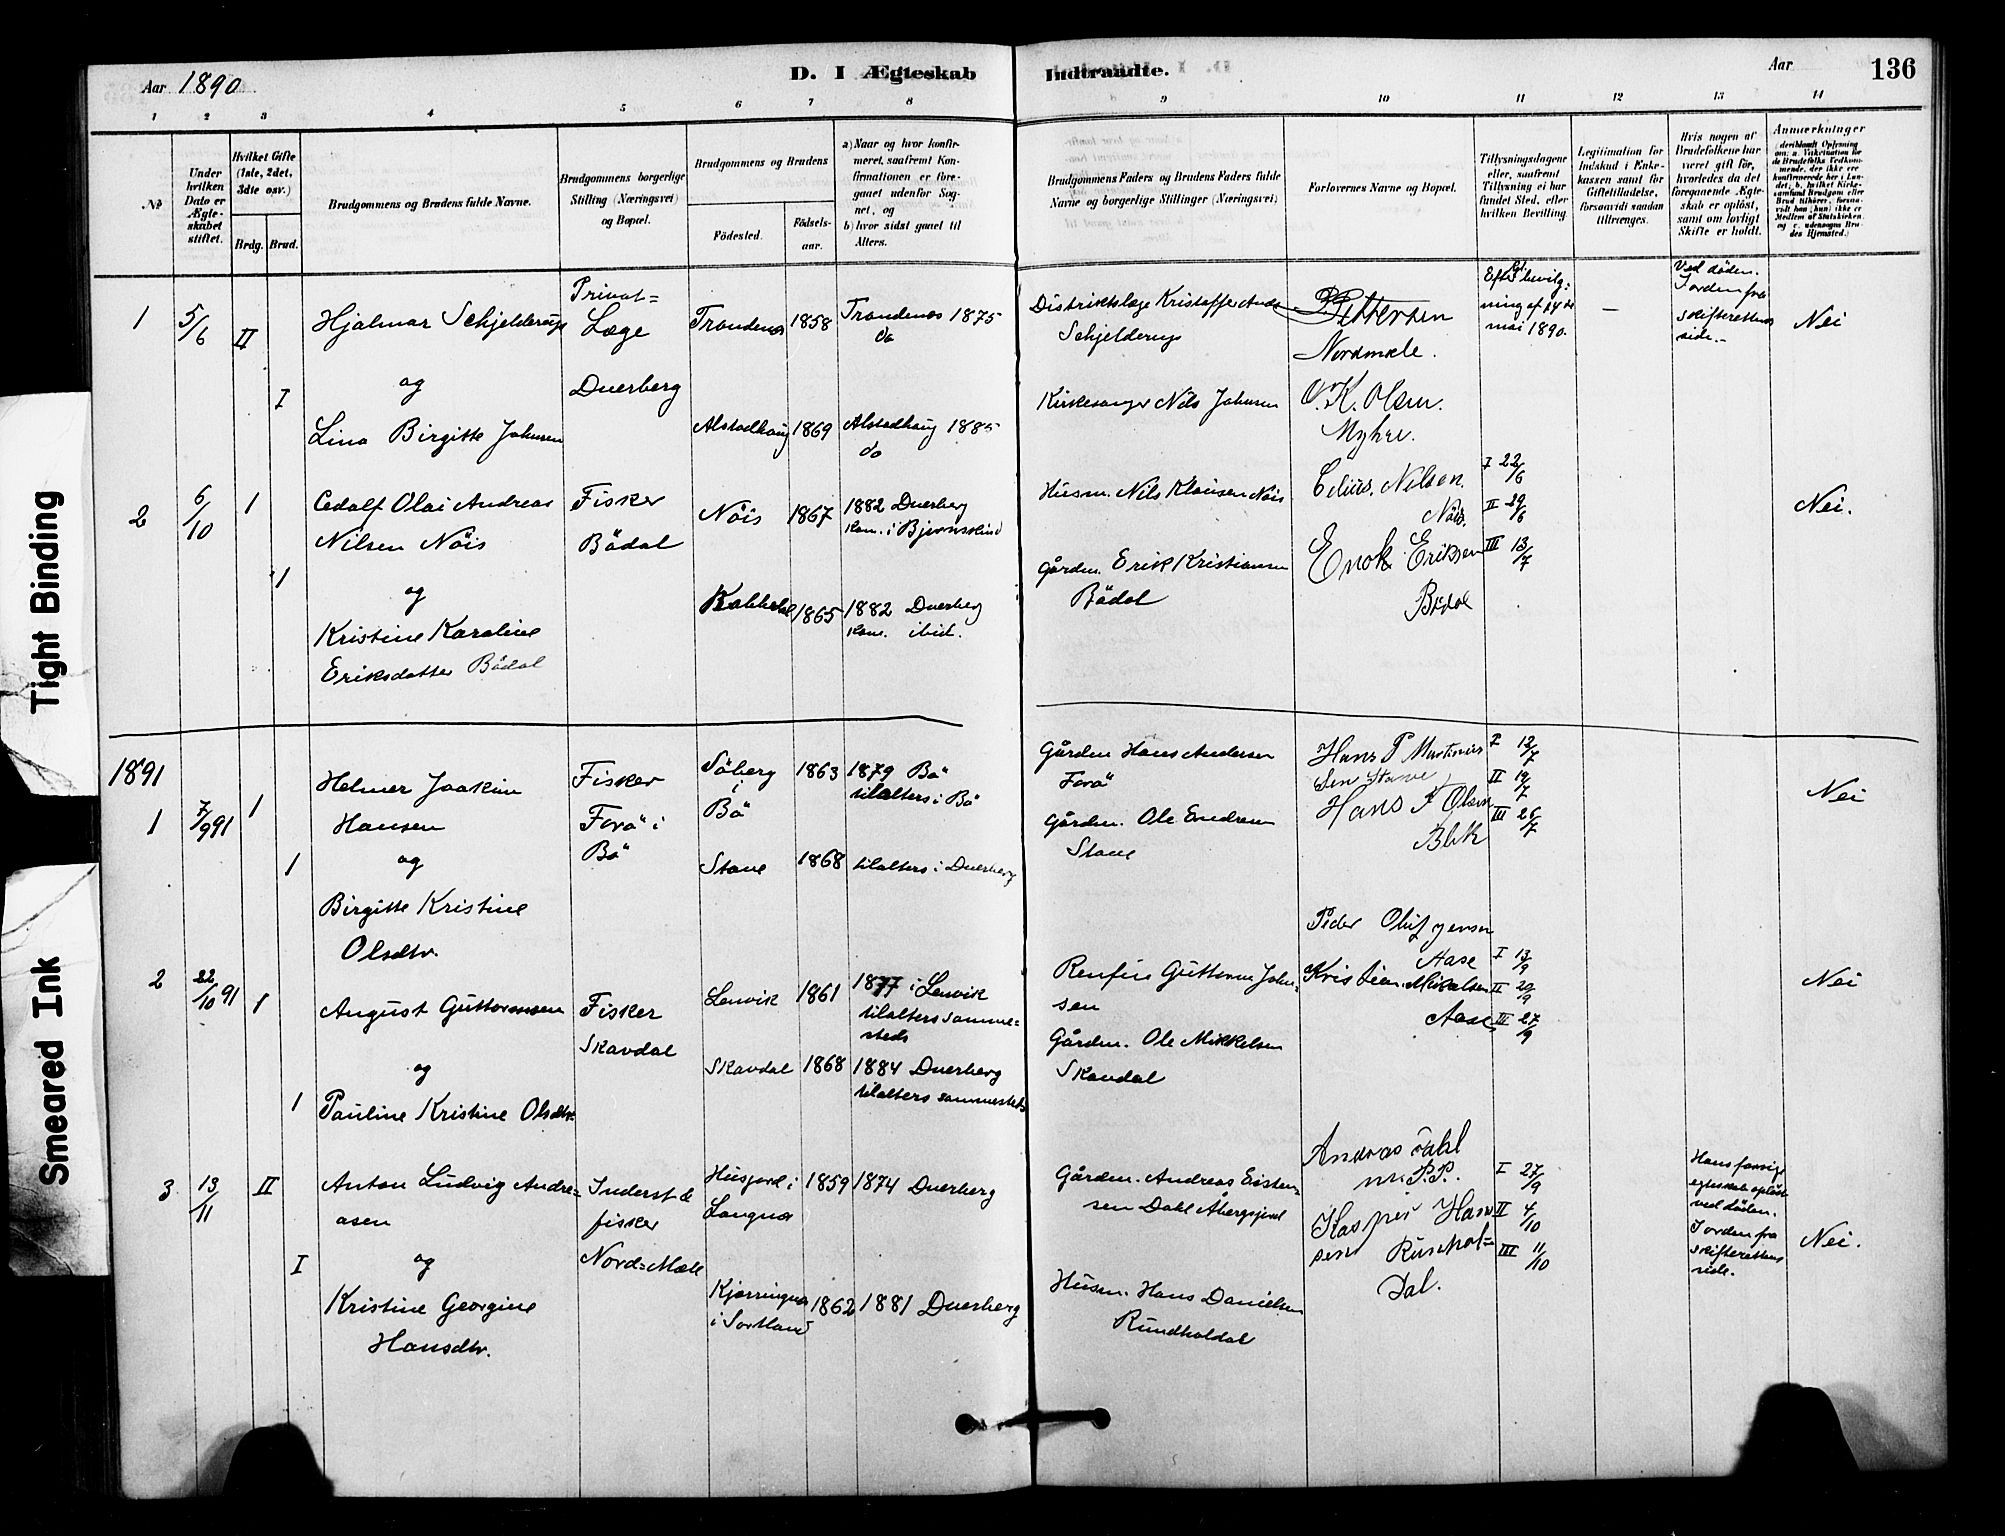 Aar 1890
D. I Ægteskab Indtraadte.
Aar
136
1 2 3 4 5 6 7 8 9 10 11 12 13 14
No
Under hvilken Dato er Ægteskabet stiftet.
Hvilket Gifte (1ste, 2det, 3die osv.)
Brdg. Brud.
Brudgommens og Brudens fulde Navne.
Brudgommens borgerlige Stilling (Næringsvei) og Bopæl.
Brudgommens og Brudens
Födested.
Födselsaar.
a) Naar og hvor konfirmeret, saafremt Konfirmationen er foregaaet udenfor Sognet, og
b) hvor sidst gaaet til Alters.
Brudgommens Faders og Brudens Faders fulde Navne og borgerlige Stillinger (Næringsvei)
Forlovernes Navne og Bopæl.
Tillysningsdagene eller, saafremt Tillysning ei har fundet Sted, efter hvilken Bevilling.
Legitimation for Indskud i Enkekassen samt for Giftetilladelse, forsaavidt saadan tiltrænges.
Hvis nogen af Brudefolkene har været gift för, hvorledes da det foregaaende Ægteskab er oplöst, samt om lovligt Skifte er holdt.
Anmærkninger
1 5/6 II Hjalmar Schjelderup
Privat=
Læge
Trondenes 1858 Trondenes 1875
do
og
I
Dverberg
Lina Birgitte Johnsen
Alstadhaug 1869 Alstadhaug 1885
do
Distriktslæge Kristoffer
Schjelderup
Pettersen
Nordmele.
Kirkesanger Nils Johnsen
O. K. Olsen.
Myhre.
bevilg=
ning af 14de
mai 1890.
—
Ved döden.
I orden fra
skifterettens
side.-
Nei
2 6/10 1 Edolf Olai Andreas
Nilsen Nöis
Fisker
Bödal
Nöis 1867 1882 Dverberg
kom. i Bjørnskind
1
og
Kristine Karoline
Eriksdatter Bödal
1865 1882 Dverberg
kom. ibid.
Husm. Nils Klausen Nöis
Nilsen
Nöis.
Gården. Erik Kristiansen
Bödal
Enok Eriksen
Bödal
I 22/6
II 29/6
III 13/7
Nei.
1891
1 7/9 91 1 Helmer Joakim
Hansen
Fisker
Forö i
Bö
Söberg
i
Bö
1863 1879 Bö
til alters i Bö
og
1
Birgitte Kristine
Olsdtr.
Stave 1868 til alters i Dverberg
Gården Hans Andersen
Forö
Gården. Ole Endresen
Stave
Hans P Martinus
sen Stave
Hans F Olsen
Blek
I 12/7
II 19/7
III 26/7
Nei
2 22/10 91 1 August Guttormsen
Fisker
Skavdal
Lenvik 1861 1877 i Lenvik
til alters samme=
steds
og
1 Pauline Kristine Olsdtr.
Skavdal 1868 1884 Dverberg
til alters sammesteds
Guttorm John=
sen
Gården. Ole Mikkelsen
Skavdal
Peder Oluf Jensen
Aase
Kristian Mikalsen
Aase
I 13/9
II 20/9
III 27/9
Nei
3 13/11 II Anton Ludvig Andre=
asen
Inderst &
fisker
Nord=Mele
Husjord i
Langnes
1859 1874 Dverberg
I
og
Kristine Georgine
Hansdtr.
Kjørringnes
i Sortland
1862 1881 Dverberg
Gården. Andreas Eisten=
sen Dahl Åbergsjord
Husm. Hans Danielsen
Rundholdal
Andreas Dahl
m. P. P.
Kasper Han
sen Runhol=
Dal.
I 27/9
II 4/10
III 11/10
Hans forrige
egteskab oplöst
ved döden.
I orden fra
skifterettens
side.
Nei.
Tight Binding
Smeared Ink